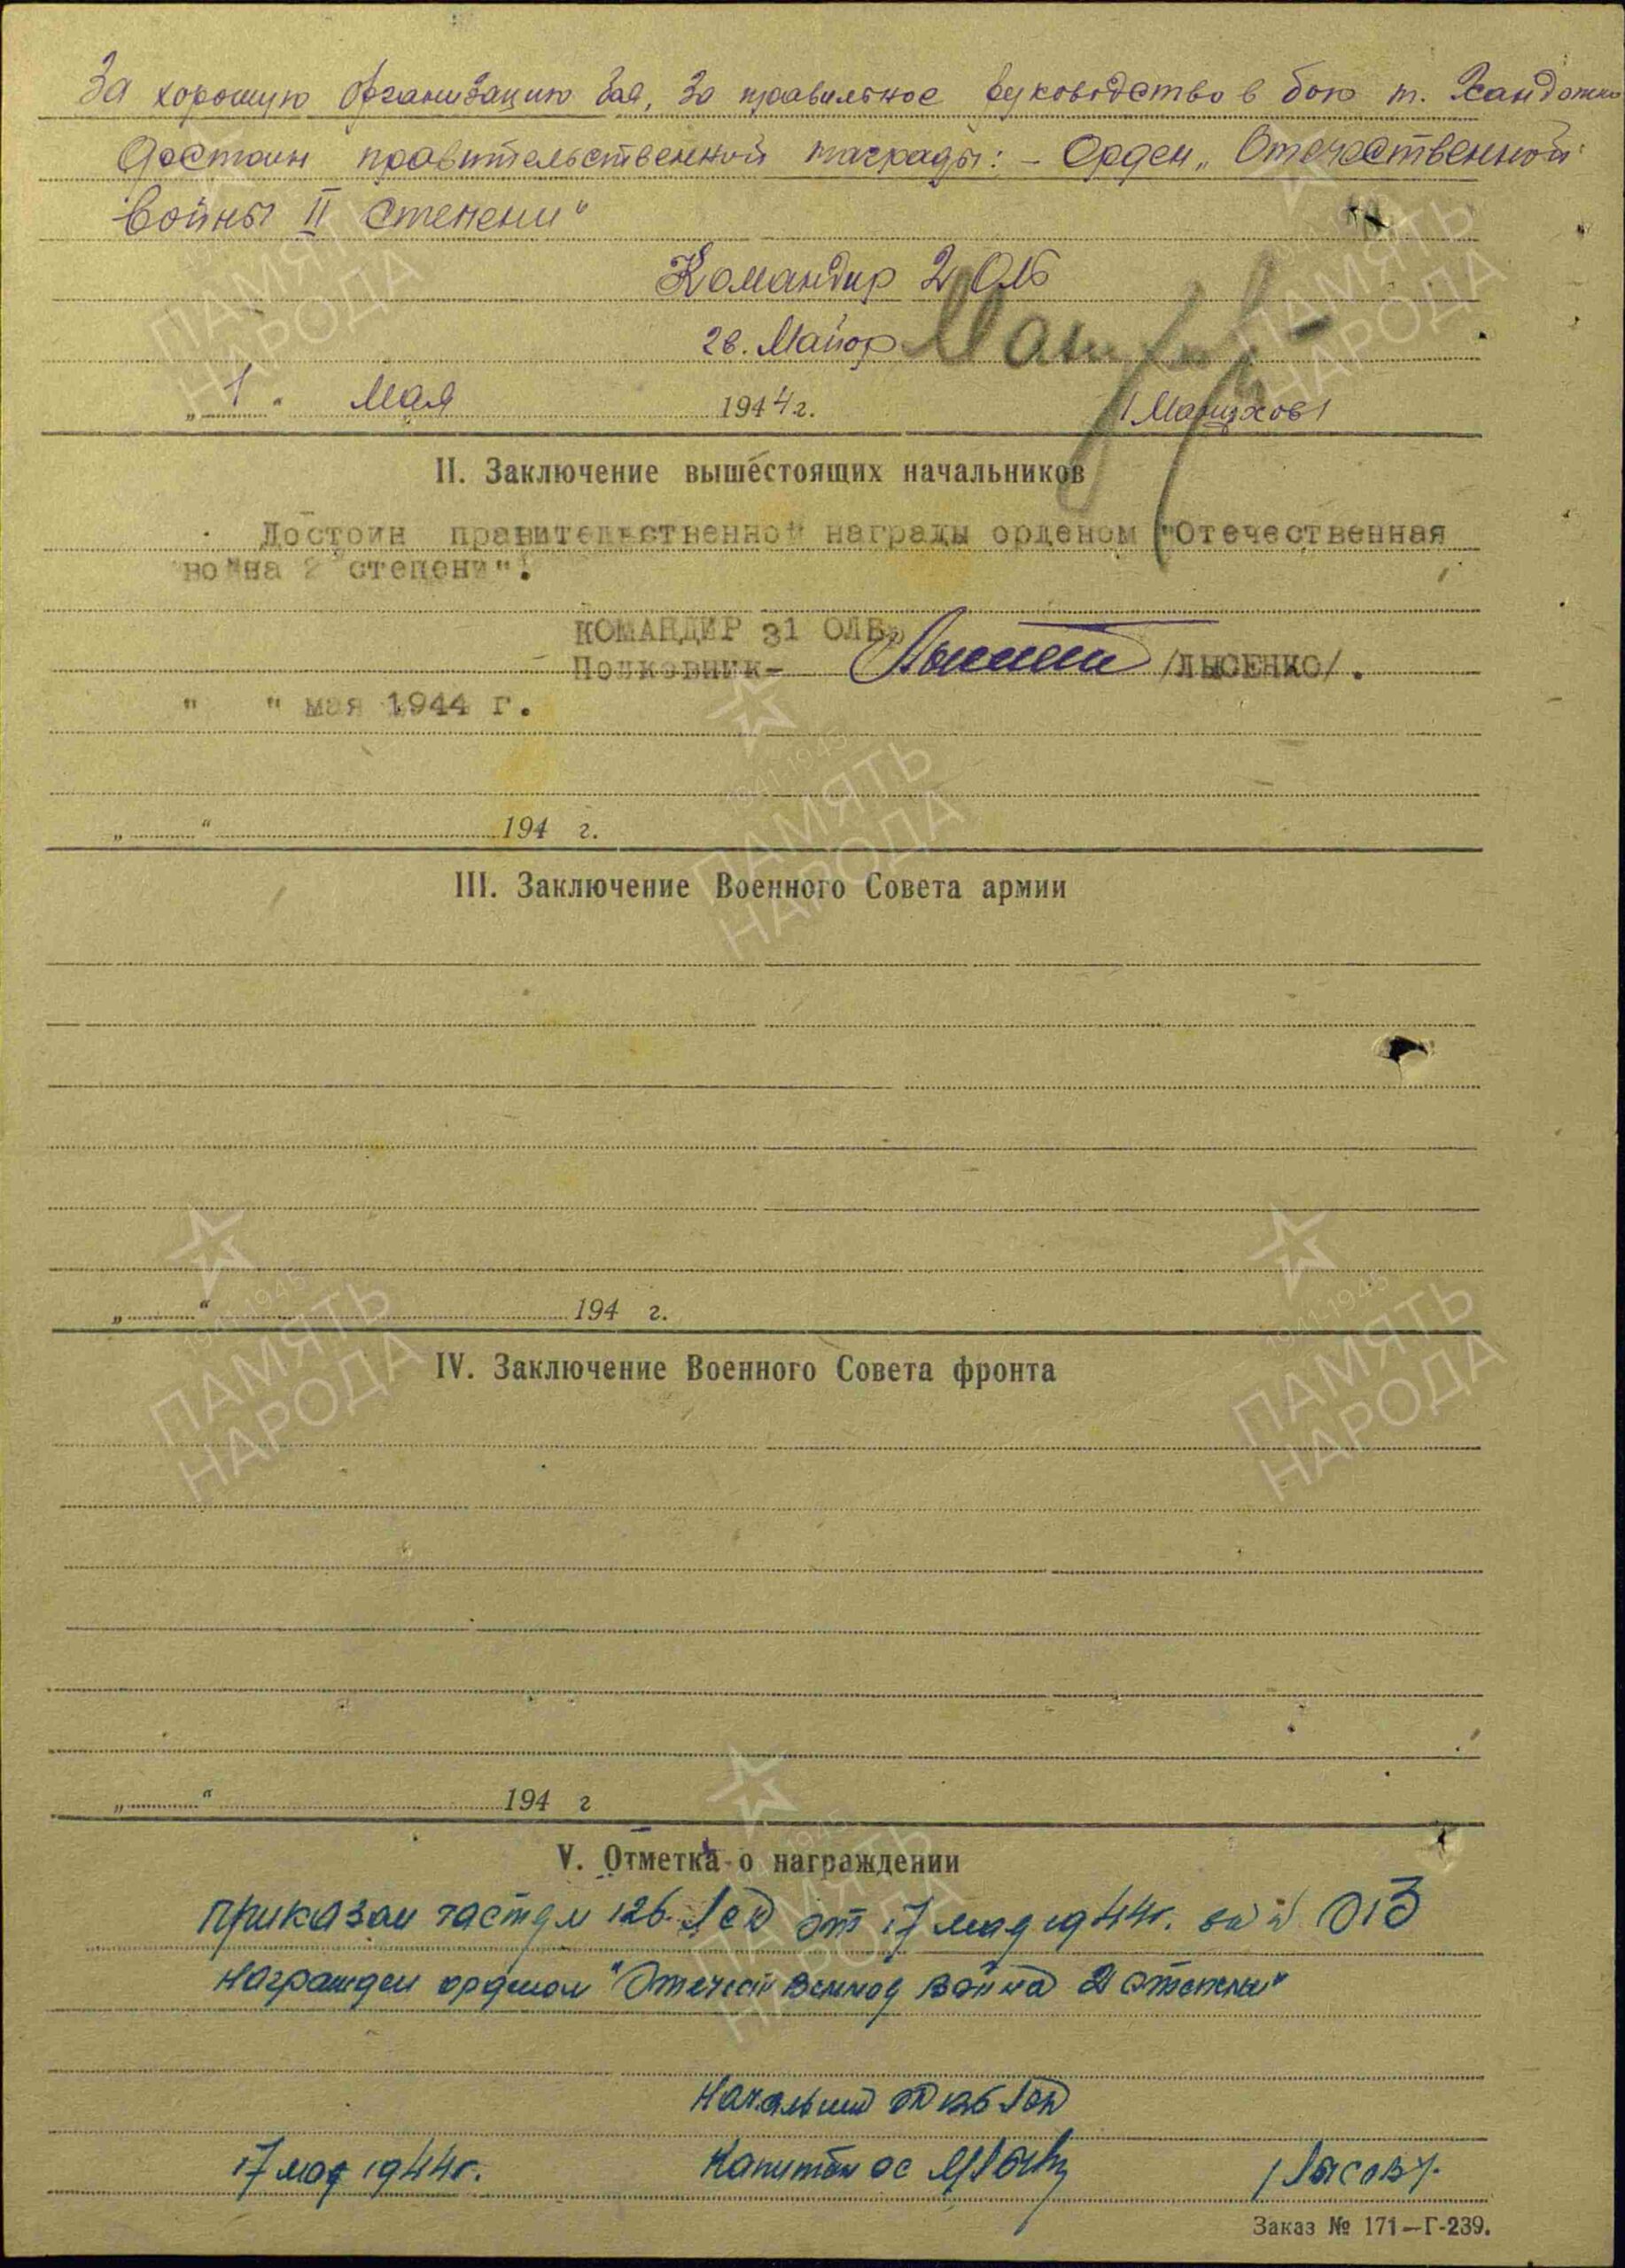 За хорошую организацию боя, за правильное руководство в бою т. Хандожко
Достоин правительственной награды: - Орден „Отечественной
войны II степени"
Командир 2 ОЛБ
гв. Майор
„ 1 " Мая 1944 г.
II. Заключение вышестоящих начальников
Достоин правительственной награды орденом "Отечественная
война 2 степени".
КОМАНДИР 31 ОЛБр
Полковник- /ЛЫСЕНКО/.
" " мая 1944 г.
„ " 194 г.
III. Заключение Военного Совета армии
„ " 194 г.
IV. Заключение Военного Совета фронта
„ " 194 г
V. Отметка о награждении
приказом частям 126 лск от 17 мая 1944г. за № 013
награжден орденом "Отечественная война 2 степени"
Начальник ОК 126 лск
17 мая 1944г. Капитан ас /Власов/.
Заказ № 171—Г-239.
ПАМЯТЬ
НАРОДА
1941-1945
ПАМЯТЬ
НАРОДА
1941-1945
ПАМЯТЬ
НАРОДА
1941-1945
ПАМЯТЬ
НАРОДА
1941-1945
ПАМЯТЬ
НАРОДА
1941-1945
ПАМЯТЬ
НАРОДА